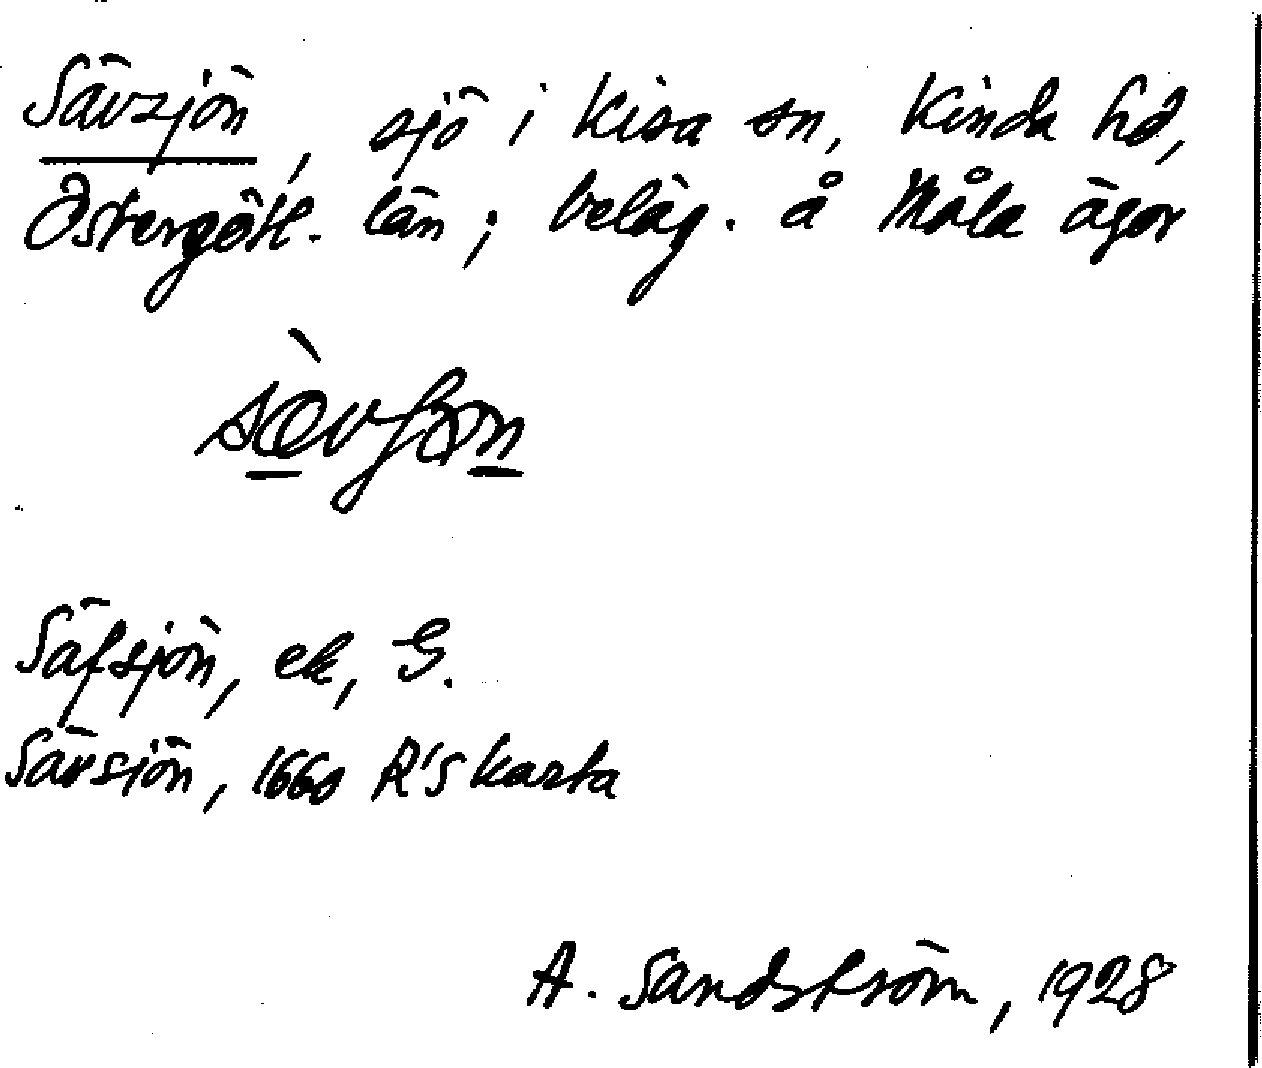 Sävsjön, sjö i Kisa sn, Kinda hd,
Östergötl. län; beläg. å Måla ägor
Säfsjön, ek, G.
Säfsiön, 1660 R's karta
A. Sandström, 1928